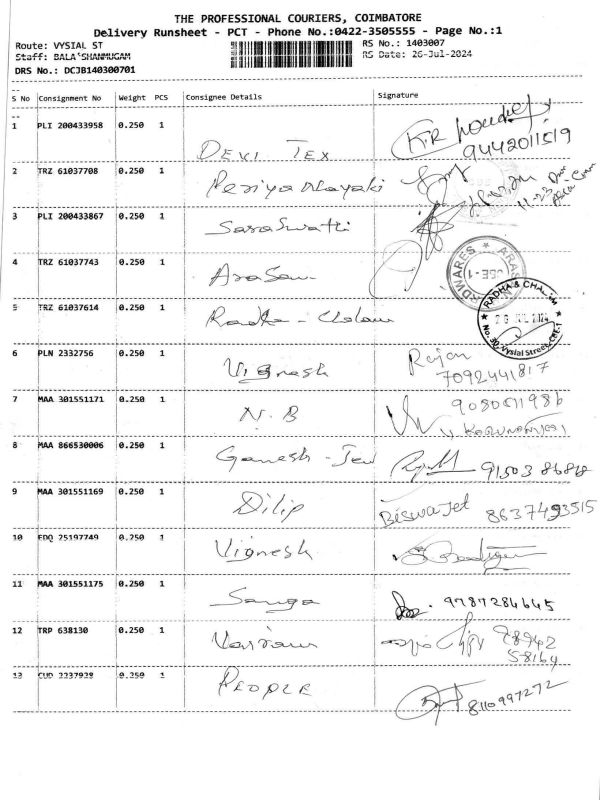 THE PROFESSIONAL COURIERS, COIMBATORE
Delivery Runsheet - PCT - Phone No.:0422-3505555 - Page No.:1
Route: VYSIAL ST
RS No.: 1403007
Staff: BALA SHANMUGAM
RS Date: 26-Jul-2024
DRS No.: DCJB140300701
S No Consignment No Weight PCS Consignee Details Signature
1 PLI 200433958 0.250 1 DEVI TEX
9442011519
2 TRZ 61037708 0.250 1 Periyanayaki
3 PLI 200433867 0.250 1 Saraswathi
4 TRZ 61037743 0.250 1 Arasan
5 TRZ 61037614 0.250 1 Radha - Chalam
RADHA & CHALAM
No. 30, Vysial Street, CBE-1
6 PLN 2332756 0.250 1 Vignesh Rajan
7092441817
7 MAA 301551171 0.250 1 N.B
8 MAA 866530006 0.250 1 Ganesh - Jew
9 MAA 301551169 0.250 1 Dilip Biswajet 8637493515
10 EDQ 25197749 0.250 1 Vignesh
11 MAA 301551175 0.250 1 9787284645
12 TRP 638130 0.250 1
58164
13 CUD 2237928 0.250 1 PEOPLE
8110997272